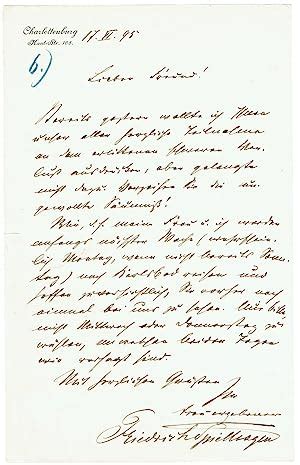 Charlottenburg
17 VI. 95
6.)
Lieber Freund!
Bereits gestern wollte ich Ihnen
unser aller herzliche Teilnahme
an dem erlittenen schweren Ver-
lust ausdrücken, aber gelangte
nicht dazu. Verzeihen Sie die un-
gewollte Säumniß!
Wir, d. h. meine Frau u. ich werden
anfangs nächster Woche (wahrschein-
lich Montag, wenn nicht bereits Sonn-
tag) nach Karlsbad reisen und
hoffen zuversichtlich, Sie vorher noch
einmal bei uns zu sehen. Nur bitte
nicht Mittwoch oder Donnerstag zu
wählen, an welchen beiden Tagen
wir versagt sind.
Mit herzlichen Grüßen
Ihr
treu ergebener
Friedrich Spielhagen